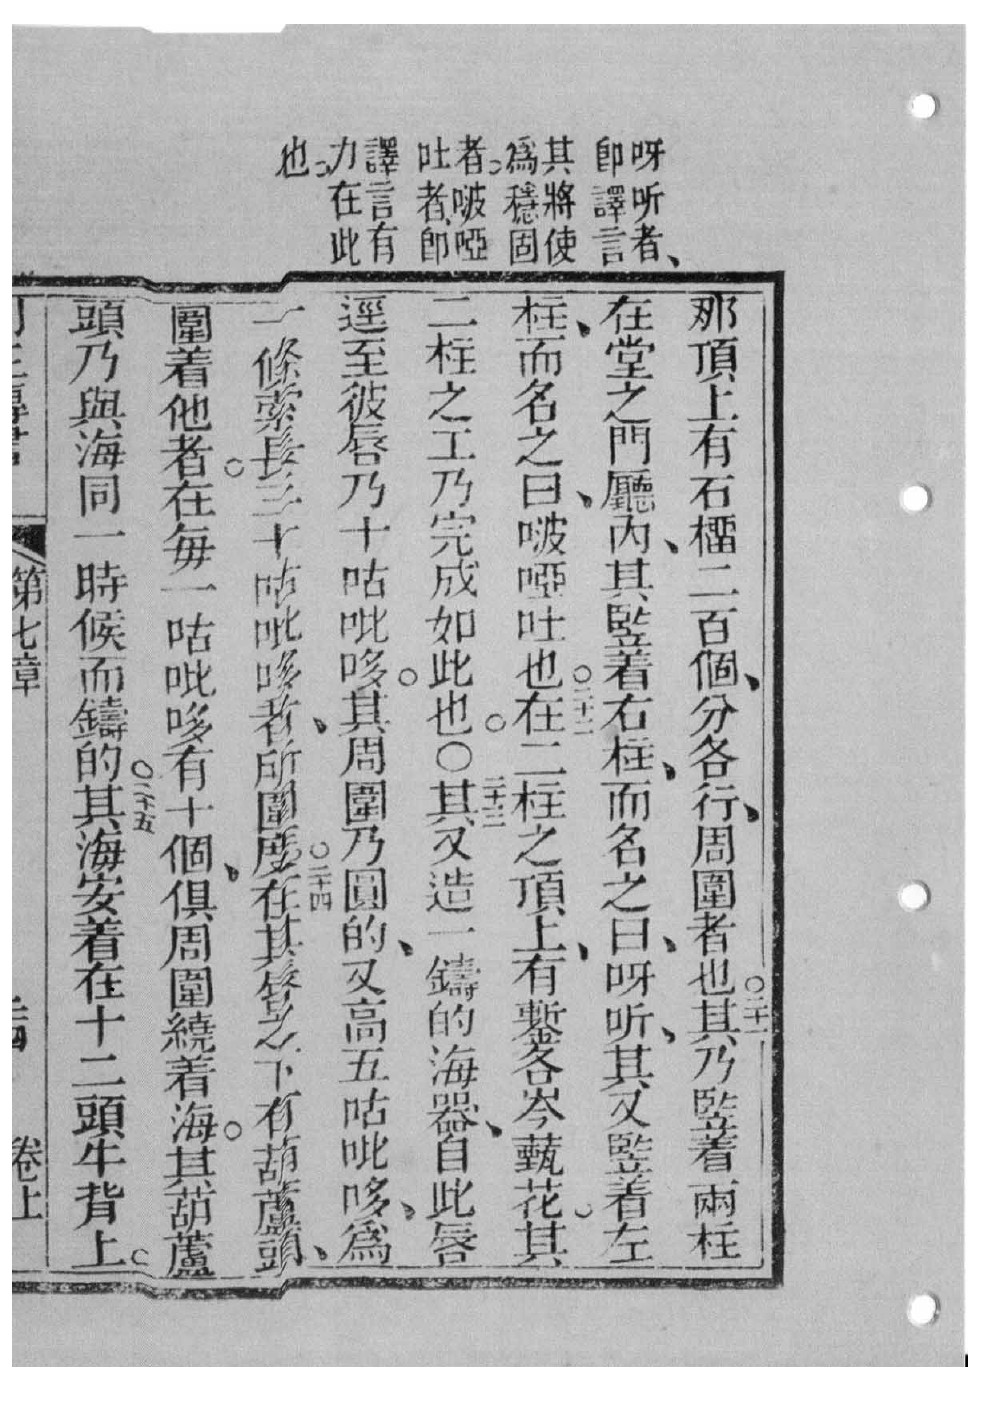 呀听者、
卽譯言
其將使
爲穩固
者。啵啞
吐者、卽
譯言有
力在此
也。
那頂上有石橊二百個、分各行、周圍者也。二十一其乃竪着兩柱
在堂之門廳內、其竪着右柱、而名之曰、呀听、其又竪着左
柱、而名之曰、啵啞吐也。二十二在二柱之頂上、有鏨各岑蓺花。其
二柱之工乃完成如此也。〇二十三其又造一鑄的海器、自此唇
逕至彼唇乃十咕吡哆。其周圍乃圓的、又高五咕吡哆、爲
一條索長三十咕吡哆者、所圍度。二十四在其唇之下有葫蘆頭、
圍着他者。在每一咕吡哆有十個、俱周圍繞着海。其葫蘆
頭乃與海同一時候而鑄的。二十五其海安着在十二頭牛背上。
第七章 卷上